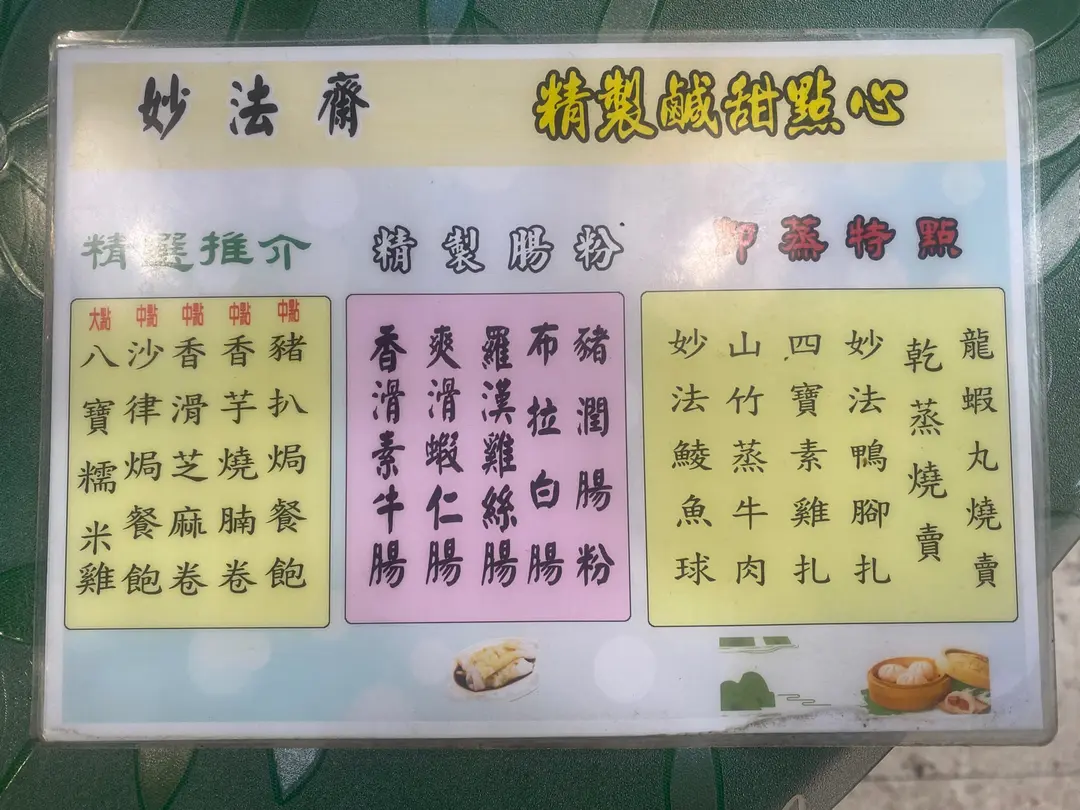 妙法齋
精製鹹甜點心
精選推介
大點
八寶糯米雞
中點
沙律焗餐飽
中點
香滑芝麻卷
中點
香芋燒腩卷
中點
豬扒焗餐飽
精製腸粉
香滑素牛腸
爽滑蝦仁腸
羅漢雞絲腸
布拉白腸
豬潤腸粉
即蒸特點
妙法鯪魚球
山竹蒸牛肉
四寶素雞扎
妙法鴨腳扎
乾蒸燒賣
龍蝦丸燒賣